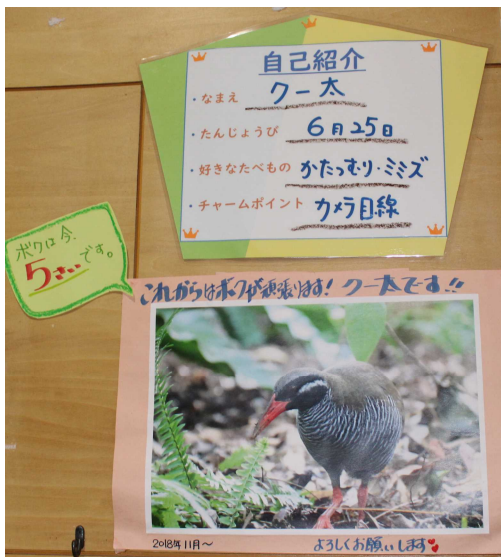 自己紹介
・なまえ クー太
・たんじょうび 6月25日
・好きなたべもの かたつむり・ミミズ
・チャームポイント カメラ目線
ボクは今、
5さいです。
これからはボクが頑張ります! クー太です!!
2018年11月〜
よろしくお願いします